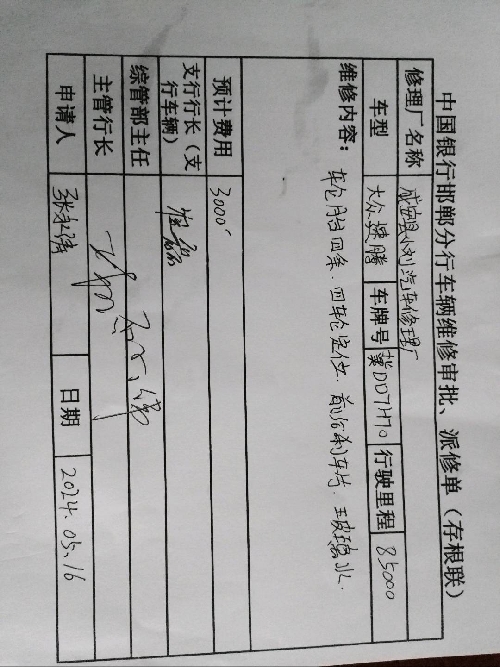 中国银行邯郸分行车辆维修审批、派修单（存根联）
修理厂名称 成安县小刘汽车修理厂
车型 大众捷腾 车牌号 冀DD7H70 行驶里程 85000
维修内容：
轮胎四条、四轮定位、前后刹车片、玻璃水、
预计费用 3000
支行行长（支
行车辆）
综管部主任
主管行长
申请人 日期 2024.05.16